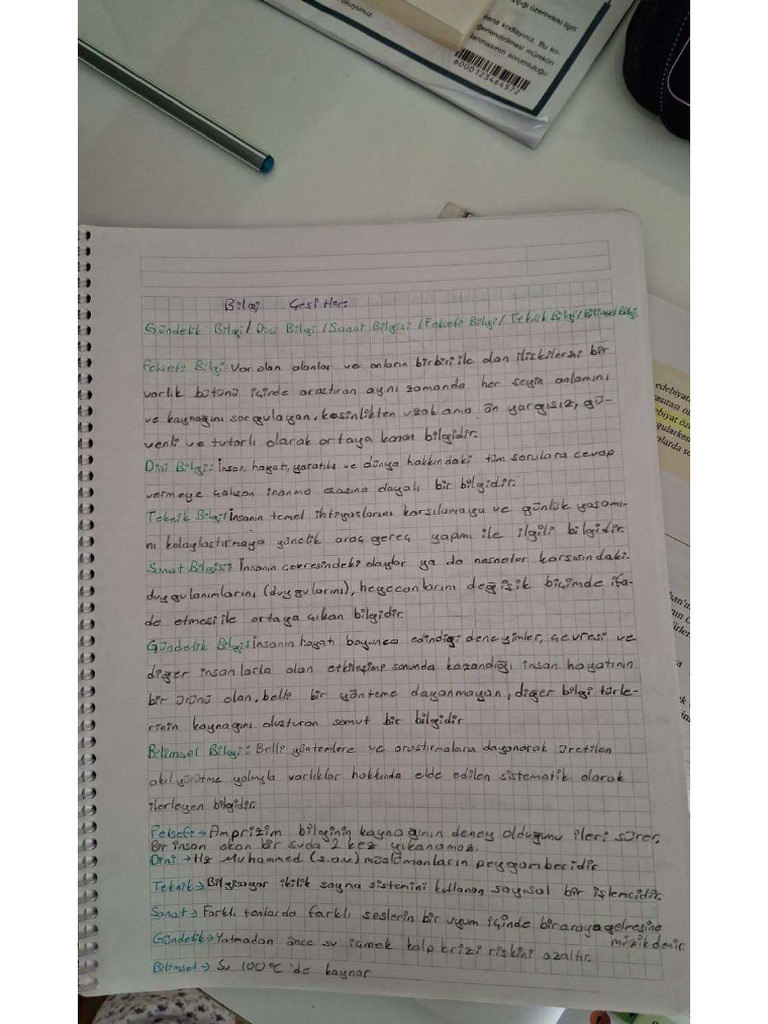 çığı üzerindeki ilgili
okuyunuz.
lama kodlayınız. Bu ko-
ğerlendirilmesi mümkün
lanmasının sorumluluğu
6000123464572
Bilgi Çeşitleri
Gündelik Bilgi / Dini Bilgi / Sanat Bilgisi / Felsefi Bilgi / Teknik Bilgi / Bilimsel Bilgi
Felsefi Bilgi: Var olan alanlar ve onların birbiri ile olan ilişkilerini bir
varlık bütünü içinde araştıran aynı zamanda her şeyin anlamını
ve kaynağını sorgulayan, kesinlikten uzak ama ön yargısız, gü-
venli ve tutarlı olarak ortaya konan bilgidir.
Dini Bilgi: İnsan, hayat, yaratılış ve dünya hakkındaki tüm sorulara cevap
vermeye çalışan inanma esasına dayalı bir bilgidir.
Teknik Bilgi: İnsanın temel ihtiyaçlarını karşılamaya ve günlük yaşamı-
nı kolaylaştırmaya yönelik araç gereç yapımı ile ilgili bilgidir.
Sanat Bilgisi: İnsanın çevresindeki olaylar ya da nesneler karşısındaki
duygulanımlarını (duygularını), heyecanlarını değişik biçimde ifa-
de etmesi ile ortaya çıkan bilgidir.
Gündelik Bilgi: İnsanın hayatı boyunca edindiği deneyimler, çevresi ve
diğer insanlarla olan etkileşimi sonunda kazandığı insan hayatının
bir ürünü olan, belli bir yönteme dayanmayan, diğer bilgi türle-
rinin kaynağını oluşturan somut bir bilgidir
Bilimsel Bilgi: Belli yöntemlere ve araştırmalara dayanarak üretilen
akıl yürütme yoluyla varlıklar hakkında elde edilen sistematik olarak
ilerleyen bilgidir.
Felsefi → Amprizim bilginin kaynağının deney olduğunu ileri sürer.
Bir insan akan bir suda 2 kez yıkanamaz.
Dini → Hz Muhammed (s.a.v.) müslümanların peygamberidir
Teknik → Bilgisayar ikilik sayma sistemini kullanan sayısal bir işlemcidir.
Sanat → Farklı tonlarda farklı seslerin bir uyum içinde bir araya gelmesine
müzik denir.
Gündelik → Yatmadan önce su içmek kalp krizi riskini azaltır.
Bilimsel → Su 100°C 'de kaynar
edebiyat
ebiyat öze
gularken